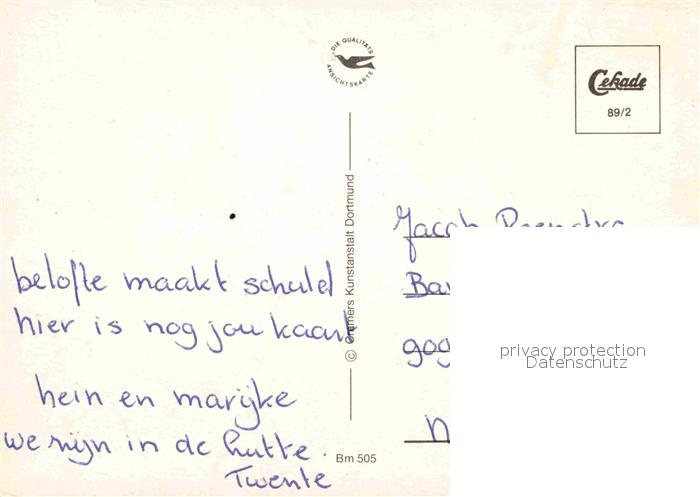 DIE QUALITÄTS
ANSICHTSKARTE
Cekade
89/2
© Cramers Kunstanstalt Dortmund
Bm 505
belofte maakt schuld
hier is nog jou kaart
hein en marijke
we zijn in de hutte.
Twente
Jacob
privacy protection
Datenschutz